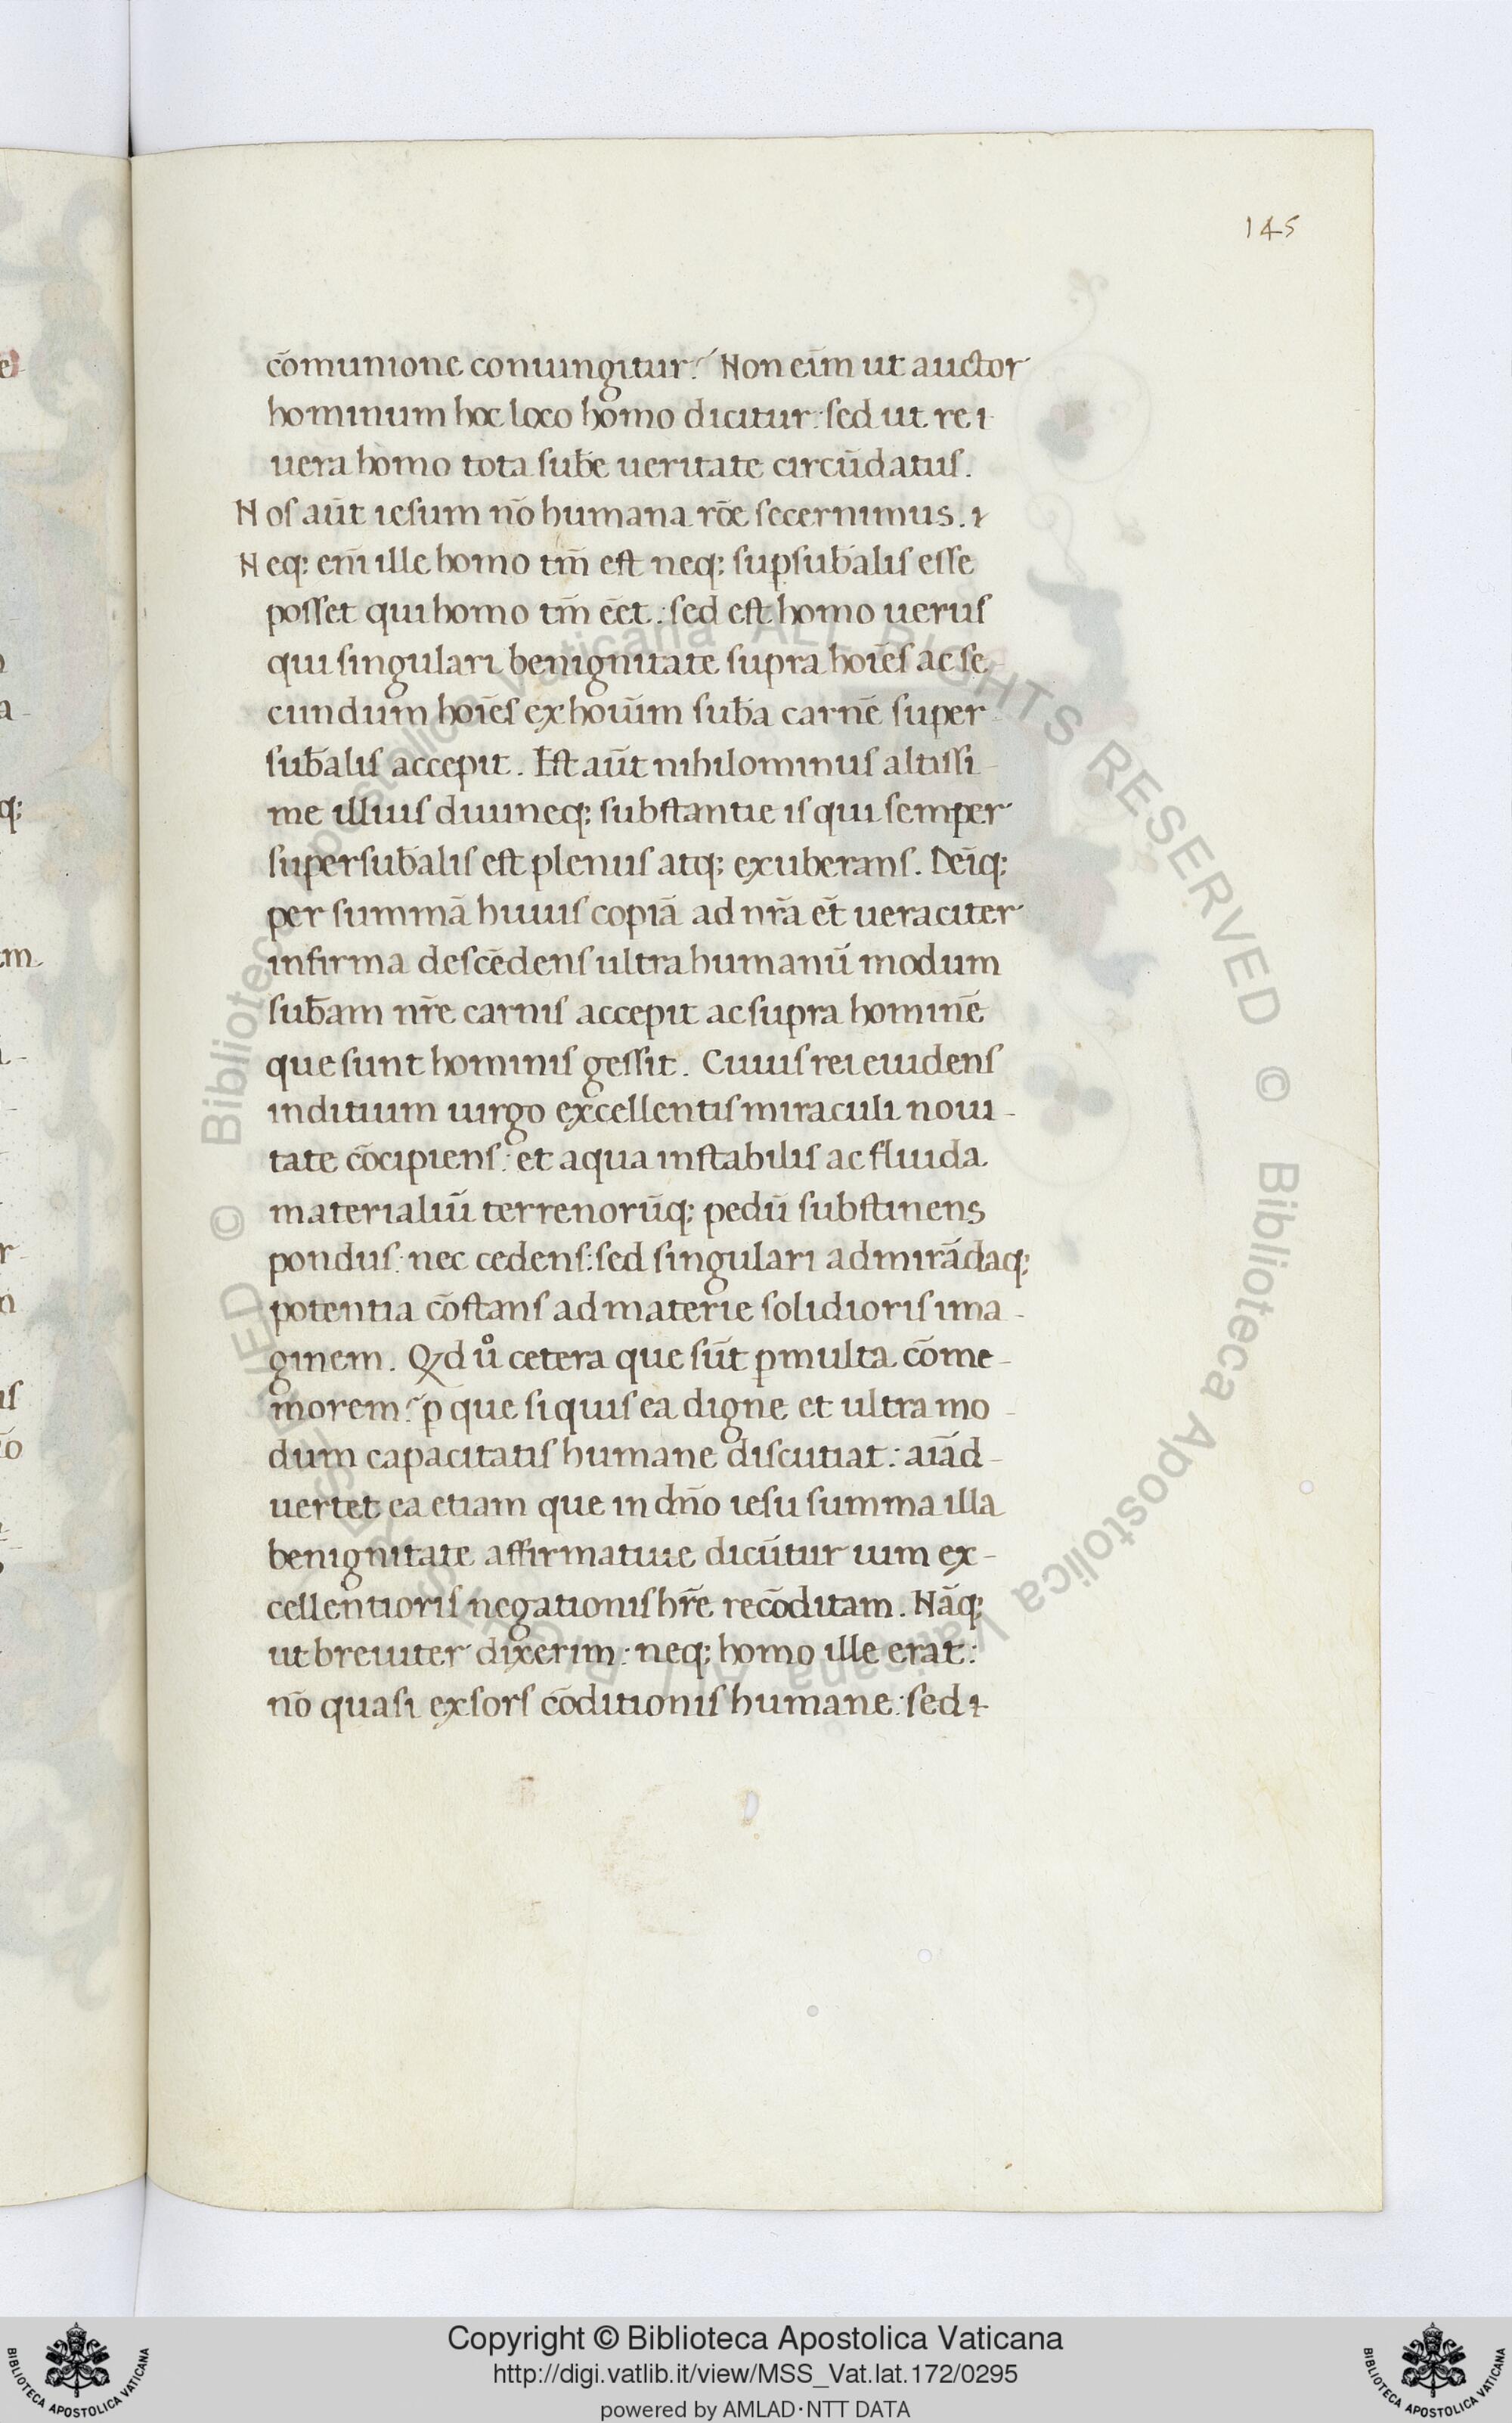 145
cōmunione coniungitur? Non eim̄ ut auctor
hominum hoc loco homo dicitur: sed ut re i
uera homo tota sub̄e ueritate circūdatus.
Nos aūt iesum nō humana rōe secernimus. i
Neq; enī ille homo tm̄ est neq; suꝑsub̄alis esse
posset qui homo tm̄ eēt: sed est homo uerus
qui singulari benignitate supra hoīes ac se
cundum hoīes ex houīm sub̄a carnē super
sub̄alis accepit. Est aūt nihilominus altissi-
me illius diuineq; substantie is qui semper
supersub̄alis est plenus atq; exuberans. Deīq;
per summā huius copiā ad nr̄a et̄ ueraciter
infirma descēdens ultra humanū modum
sub̄am nr̄e carnis accepit ac supra hominē
que sunt hominis gessit. Cuius rei euidens
inditium uirgo excellentis miraculi noui-
tate cōcipiens: et aqua instabilis ac fluida
materialiū terrenorūq; pedū substinens
pondus: nec cedens: sed singulari admirādaq;
potentia cōstans ad materie solidioris ima-
ginem. Qd uͦ cetera que sūt ꝑmulta cōme-
morem? ꝑ que si quis ea digne et ultra mo-
dum capacitatis humane discutiat: aīad-
uertet ea etiam que in dn̄o iesu summa illa
benignitate affirmatiue dicūtur uim ex-
cellentioris negationis hr̄e recōditam. Nāq;
ut breuiter dixerim: neq; homo ille erat:
nō quasi exsors cōditionis humane: sed i
Copyright © Biblioteca Apostolica Vaticana
http://digi.vatlib.it/view/MSS_Vat.lat.172/0295
powered by AMLAD·NTT DATA